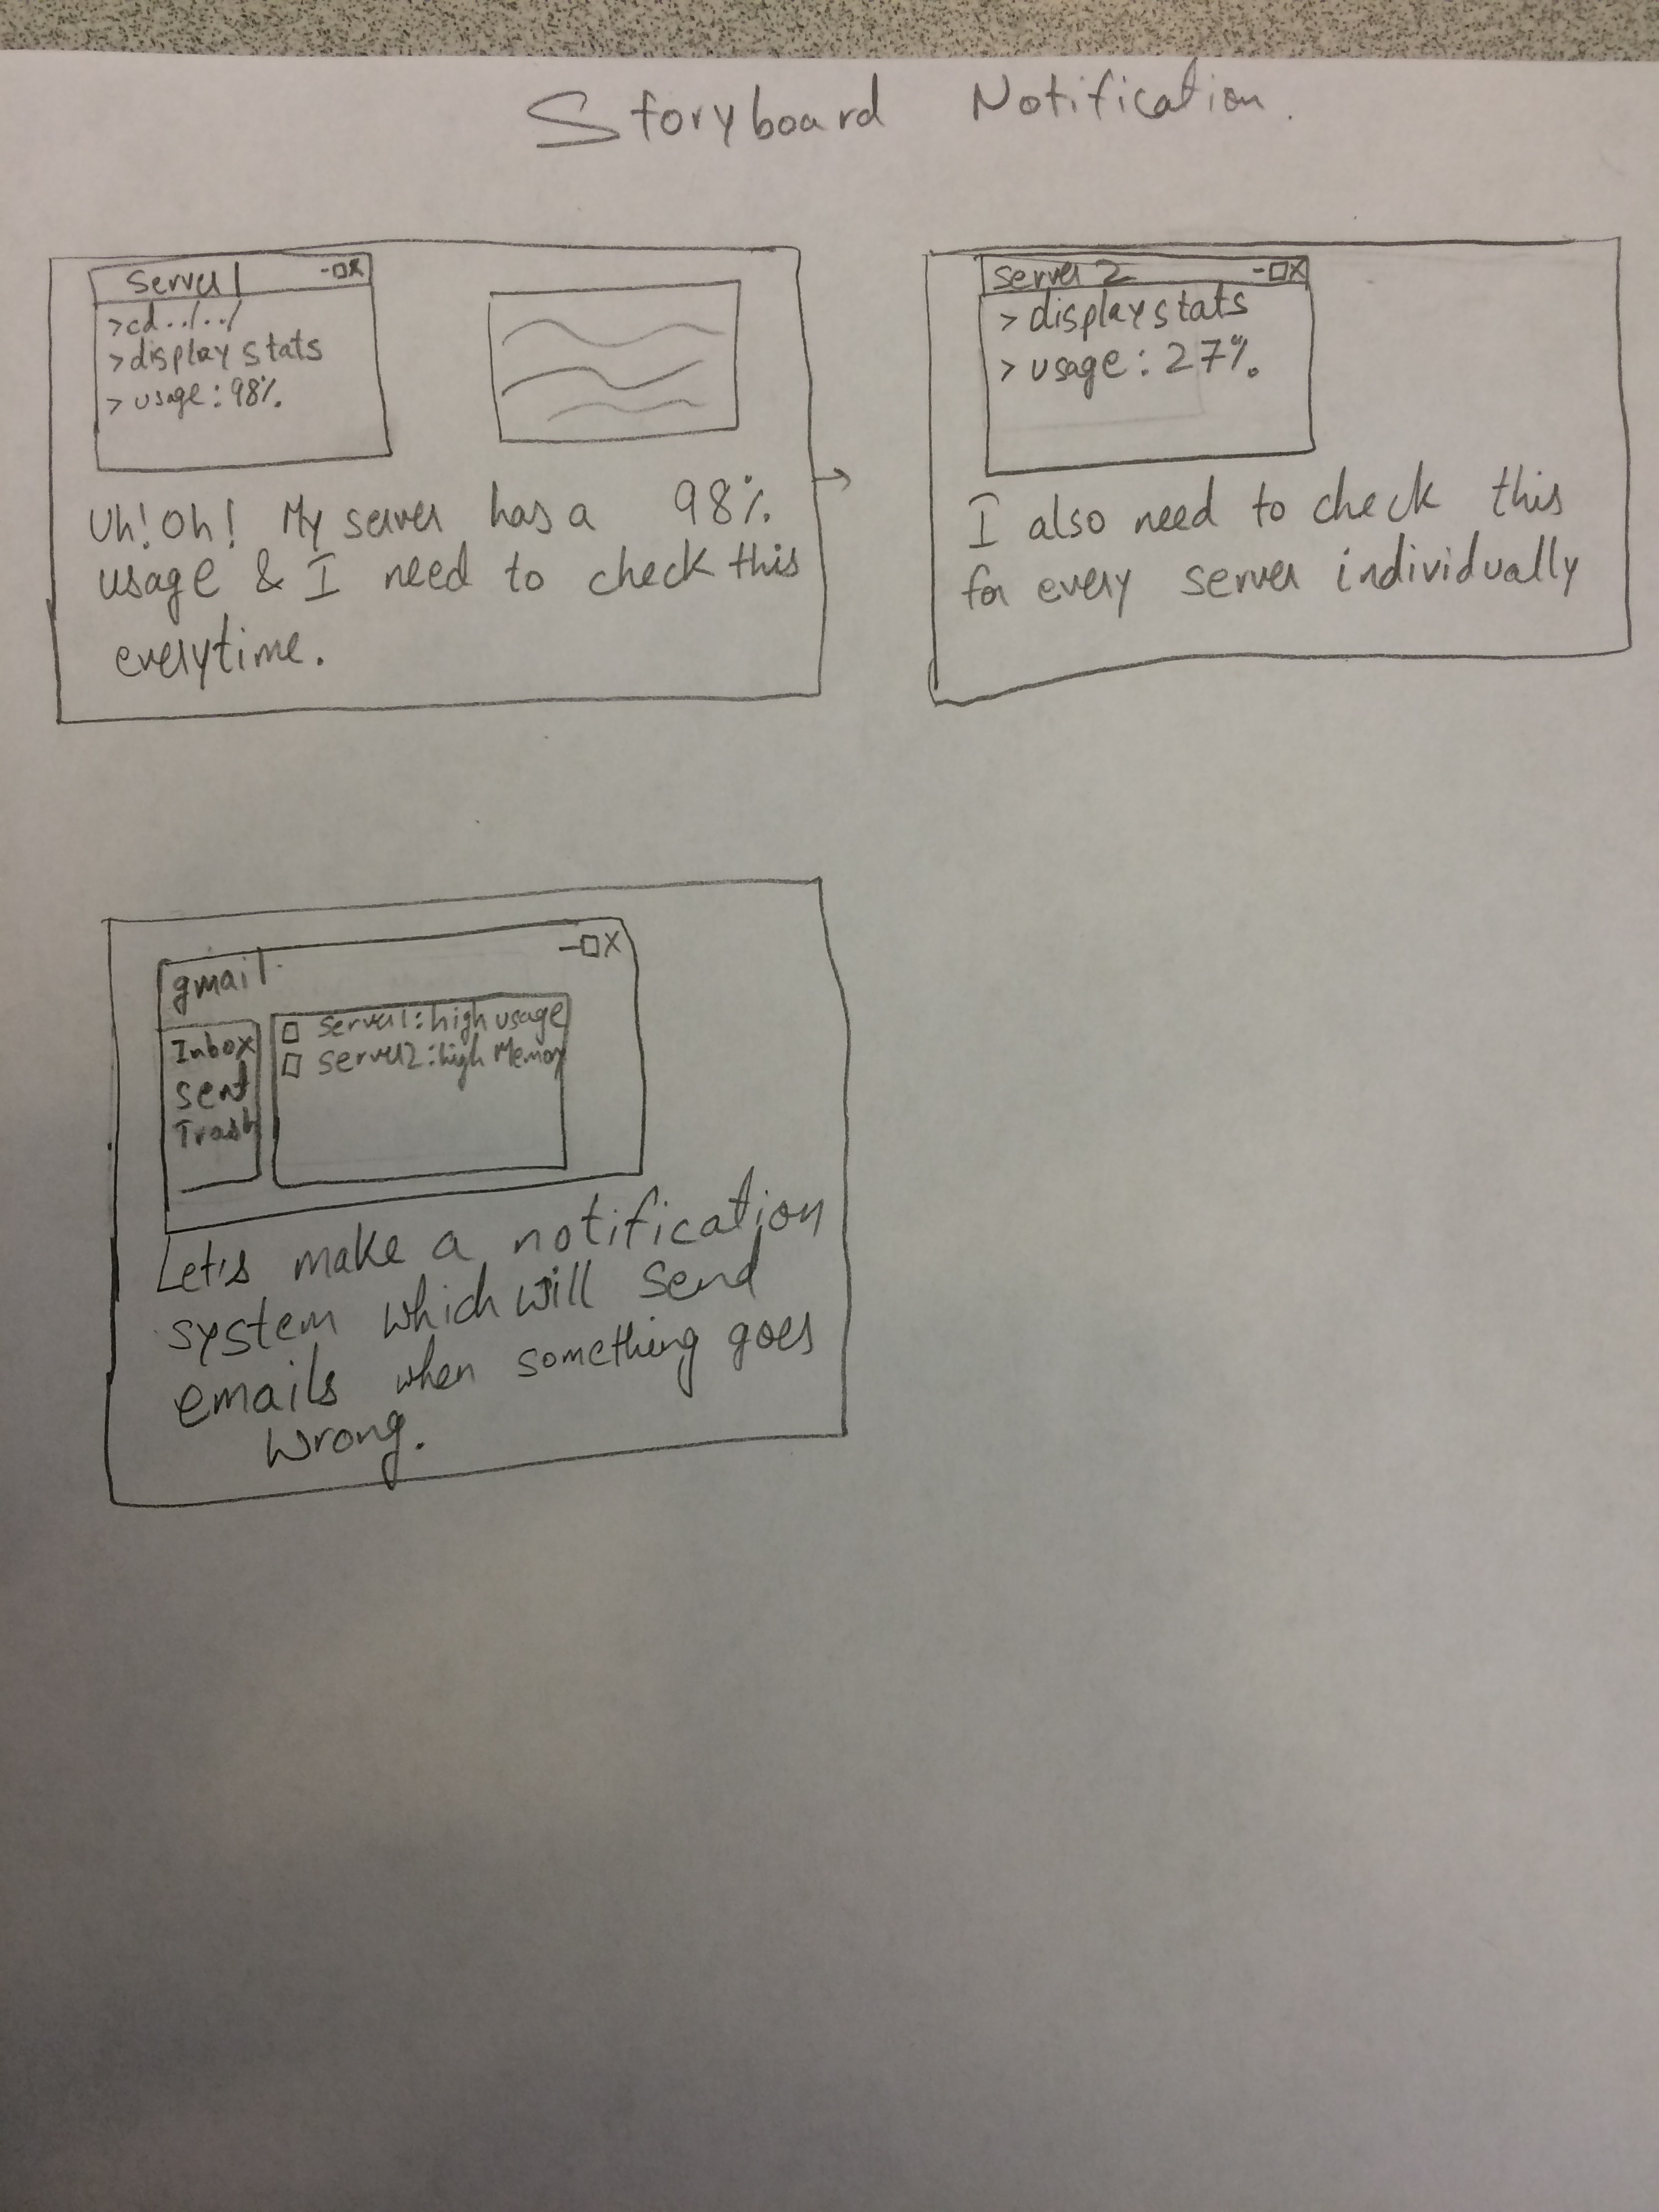 Storyboard Notification.
Server1 -□x
>cd../../
>display stats
> usage:98%.
Uh!Oh! My server has a 98%.
usage & I need to check this
everytime.
server 2 -□X
> display stats
> usage: 27%.
I also need to check this
for every server individually
-□X
gmail
Inbox
sent
Trash
□ server1:high usage
□ server2:high Memory
Let's make a notification
system which will send
emails when something goes
wrong.